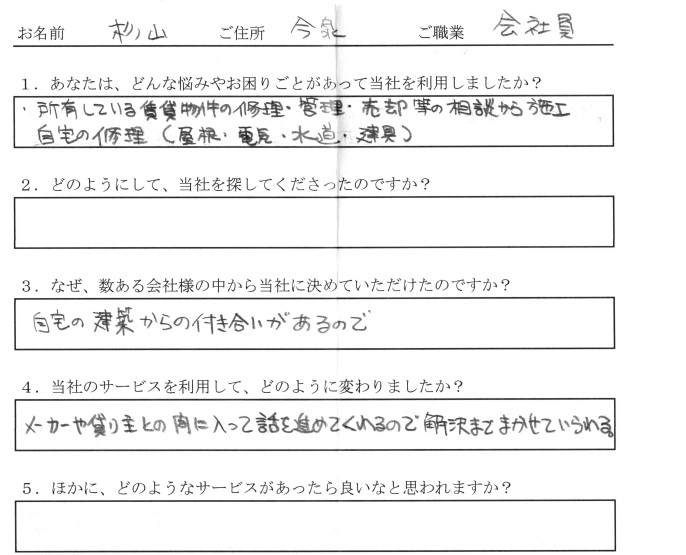 お名前 杉山 ご住所 今泉 ご職業 会社員
1．あなたは、どんな悩みやお困りごとがあって当社を利用しましたか？
・所有している賃貸物件の修理・管理・売却等の相談から施工
自宅の修理（屋根・電気・水道・建具）
2．どのようにして、当社を探してくださったのですか？
3．なぜ、数ある会社様の中から当社に決めていただけたのですか？
自宅の建築からの付き合いがあるので
4．当社のサービスを利用して、どのように変わりましたか？
メーカーや貸り主との間に入って話を進めてくれるので解決までまかせていられる。
5．ほかに、どのようなサービスがあったら良いなと思われますか？